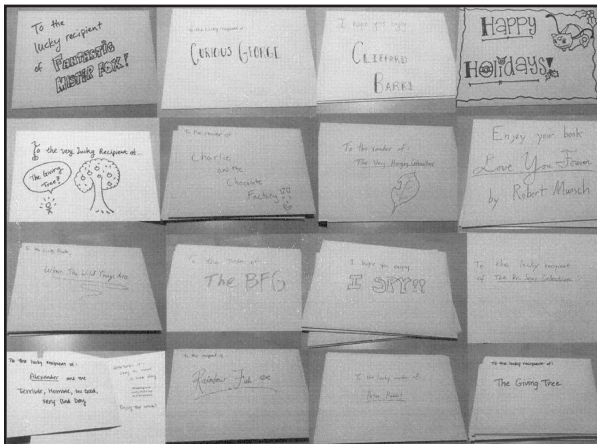 To the
lucky recipient
of FANTASTIC
MISTER FOX!
To the lucky recipient of
CURIOUS GEORGE
I hope you enjoy
CLIFFORD
BARKS
Happy
Holidays!
To the very lucky Recipient of...
The Giving
Tree!
To the reader of
Charlie
and the
Chocolate
Factory
To the reader of:
The Very Hungry Caterpillar
Enjoy your book
Love You Forever
by Robert Munsch
To the lucky
Where The Wild Things Are
To the reader of:
The BFG
I hope you enjoy
I SPY!!
To the lucky recipient
of The Dr. Seuss Collection
To the lucky recipient of:
Alexander and the
Terrible, Horrible, No Good,
Very Bad Day
Enjoy the
To the recipient of
Rainbow Fish
To the lucky reader of
Peter Rabbit
To the lucky recipient of:
The Giving Tree